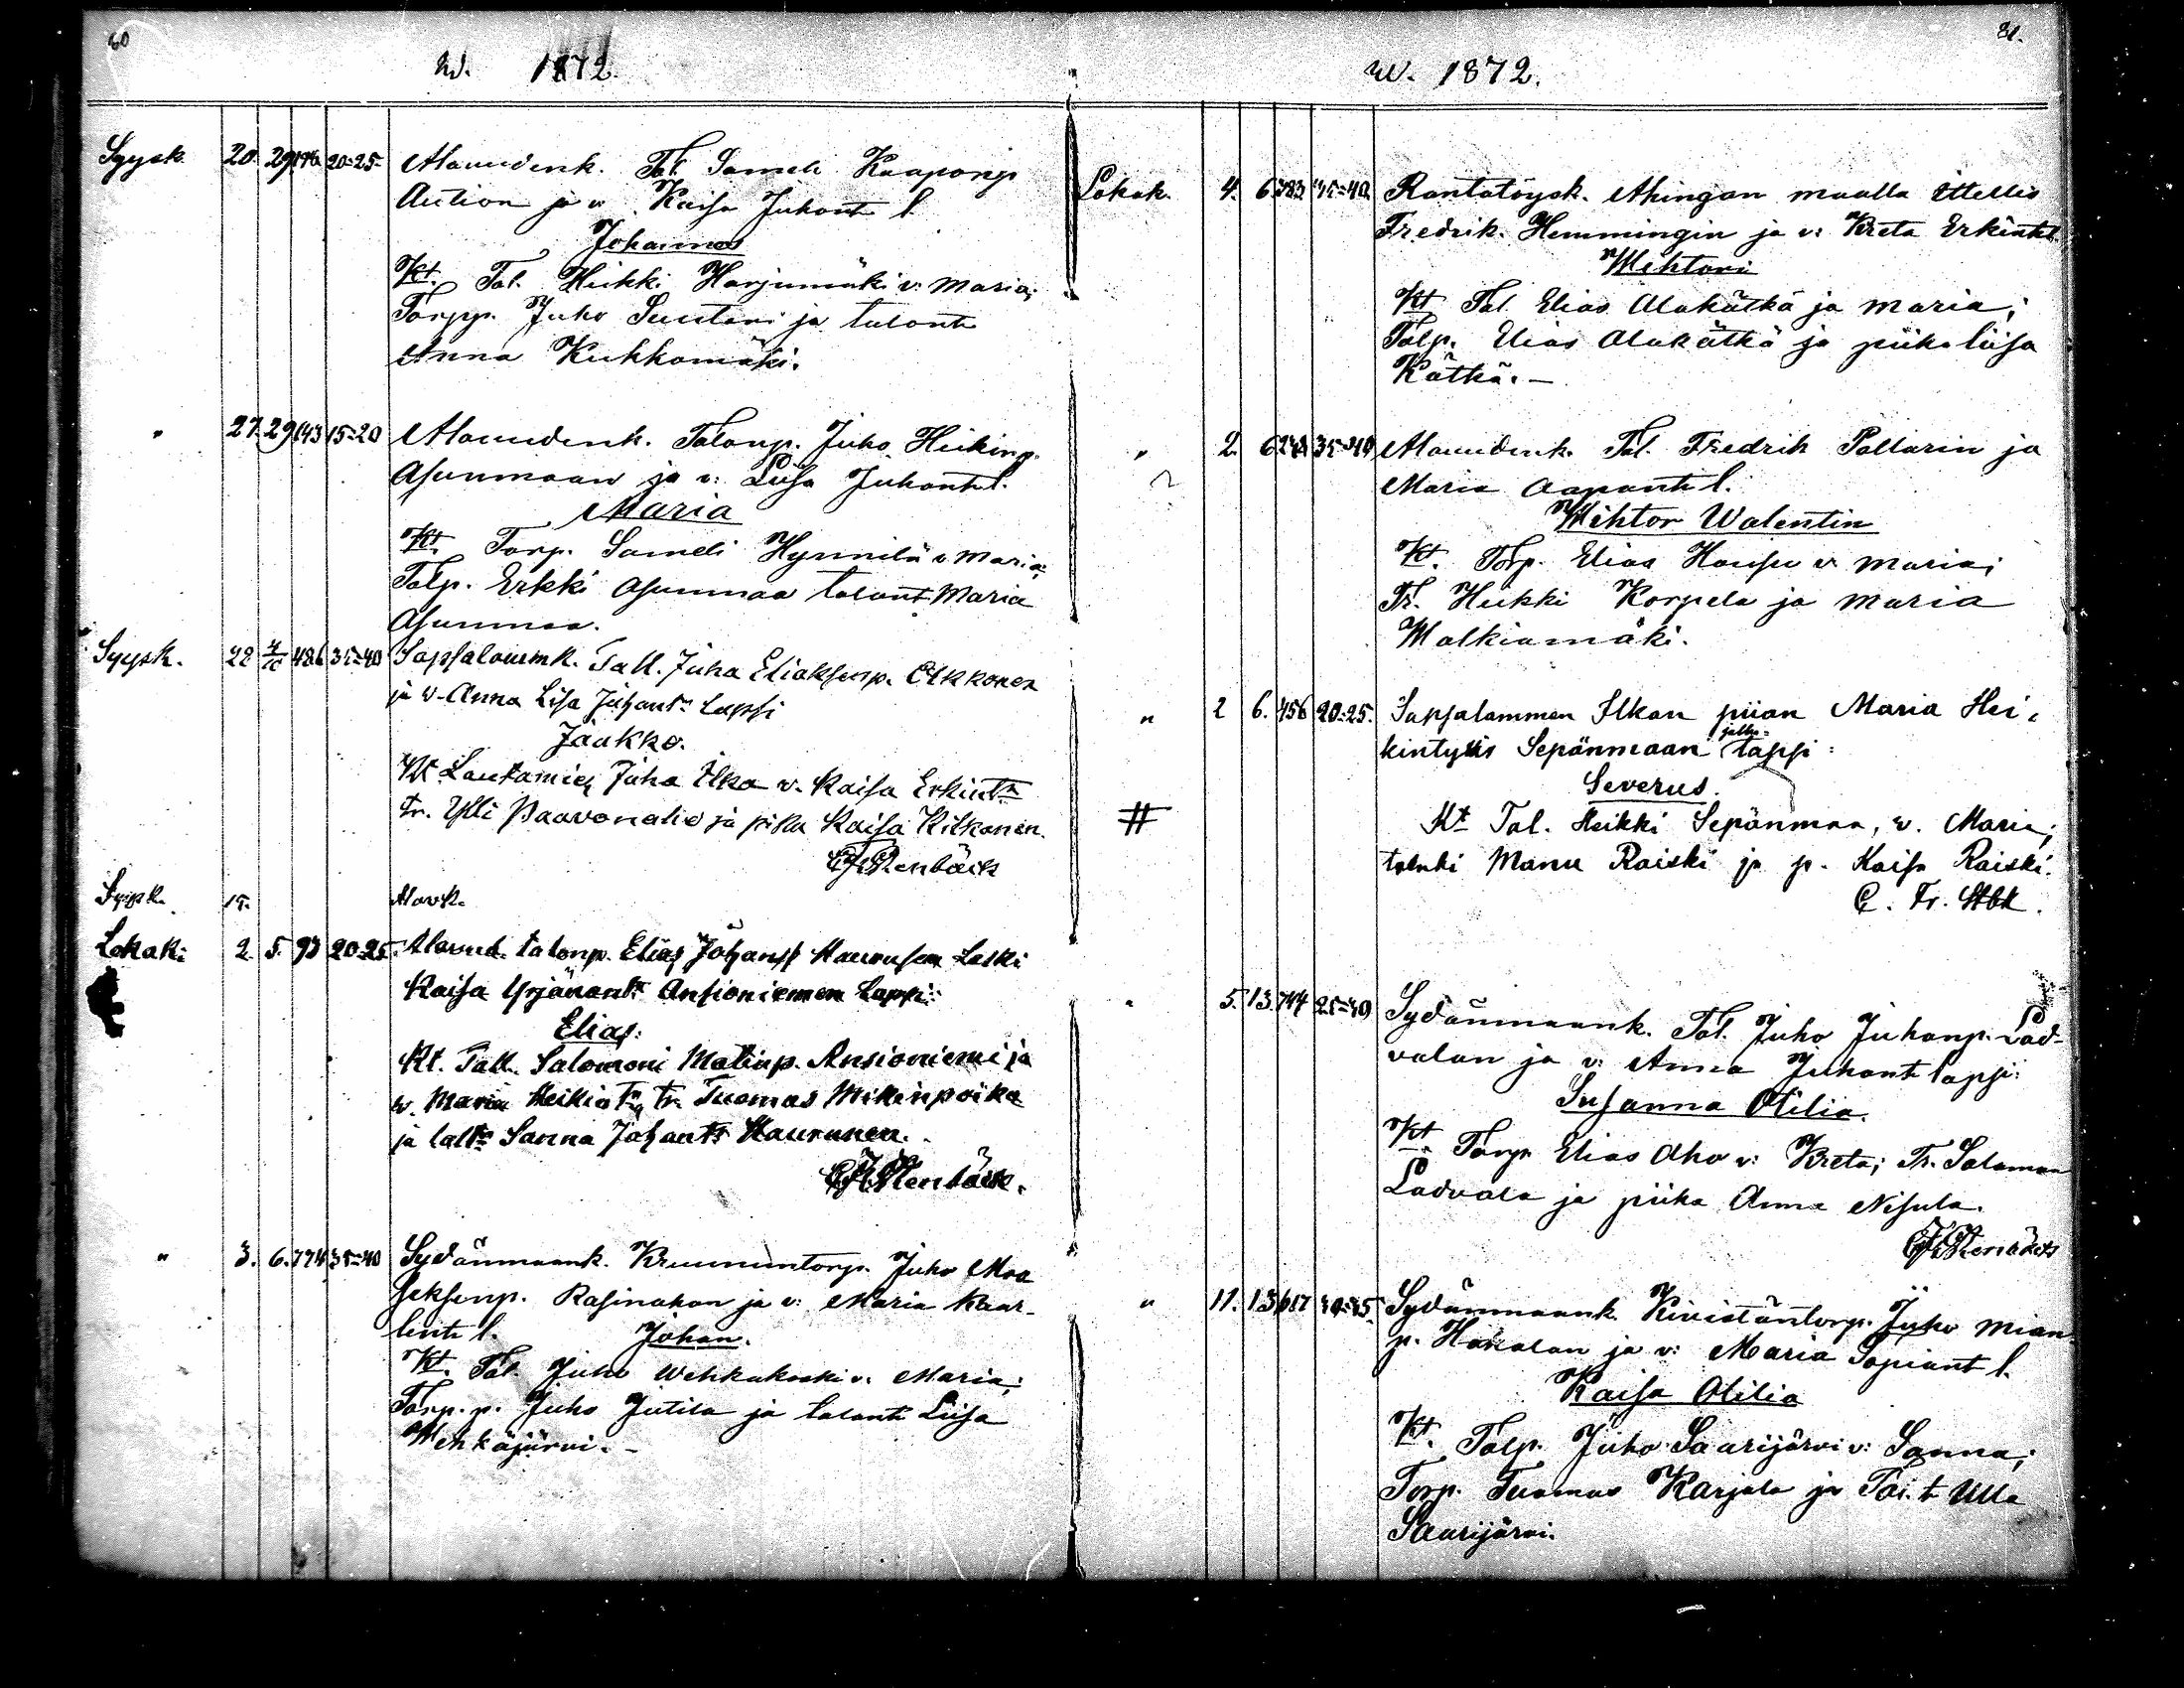 60
w. 1872.
Syysk. 20. 29 196 20-25. Alavudenk. Tal. Sameli Kaapongi
Aution ja v. Kaisa Juhont. l.
Johannes
Kt. Tal. Heikki Harjumäki v: Maria;
Torpp. Juho Suutari ja talont.
Anna Kuhkomäki.
" 27. 29 143 15-20 Alavudenk. Talonp. Juho Heikinp.
Asunmaan ja v: Liisa Juhont l.
Maria
Kt. Torp. Sameli Hynnilä v. Maria;
Talp. Erkki Asunmaa talont. Maria
Asunmaa.
Syysk. 28 4/10 486 35-40 Sapsalamink. Tall. Juha Eliaksenp. Olkkonen
ja v. Anna Lisa Juhant. Lapsi
Jaakko.
Kt Lautamies Juha Ilka v. Kaisa Erkint.
tr. Ylli Paavonalio ja pika Kaisa Kilkonen.
C Fr Stenbäck
Syysk. 15. Alavk.
Lokak: 2. 5. 93 20-25. Alavud. talonp. Elias Johanss Haurusen Leski
Kaisa Yrjänant. Ansioniemen Lapsi:
Elias.
Kt. Tall. Salomoni Matinp. Ansioniemi ja
v. Maria Heikint. tr. Tuomas Mikinpoika
ja talt. Sanna Johant. Haurunen.
C Fr Stenbäck.
" 3. 6. 774 35-40 Sydänmaank. Kruununtorp. Juho Moa
seksenp. Rasinahon ja v: Maria Kaar-
lent l. Johan.
Kt. Tal. Juho Wehkakoski v. Maria;
Torp. p. Juho Jutila ja talont Liisa
Wehkäjärvi. -
81.
w. 1872.
Lokak. 4. 6. 783 35-40. Rantatöysk. Ahingan maalla Ittellis
Fredrik Hemmingin ja v: Kreta Erkint l.
Wihtori
Kt. Tal. Elias Alakätkä ja Maria;
Talp. Elias Alakätkä ja piika Liisa
Kätkä. -
" 2. 6 35-40 Alavudenk. Tal. Fredrik Pollarin ja
Maria Aapont l.
Wihtor Walentin
Kt. Torp. Elias Hausu v. Maria;
Tr. Heikki Korpela ja Maria
Malkiamäki.
" 2 6. 456 20-25. Sapsalammen Ilkan piian Maria Hei-
kintytär Sepänmaan jalka- lapsi:
Severus.
# Kt Tal. Heikki Sepänmaa, v. Maria;
trenki Manu Raiski ja p. Kaisa Raiski.
C. Fr. Stbk.
" 5. 13. 744 25-30 Sydänmaank. Tal. Juho Juhonp. Lad-
valan ja v: Anna Juhont lapsi:
Susanna Otilia.
Kt. Torp. Elias Aho v: Kreta; Tr. Salomon
Ladvala ja piika Anna Nisula.
C Fr Stenbäck
" 11. 13. 617 40-45. Sydänmaank. Kivistöntorp. Juho Mian
p. Hakalan ja v: Maria Sopiant l.
Kaisa Otilia
Kt. Talp. Juho Saarijärvi v: Sanna;
Torp. Tuomas Karjala ja Tai. t. Ulla
Saarijärvi.